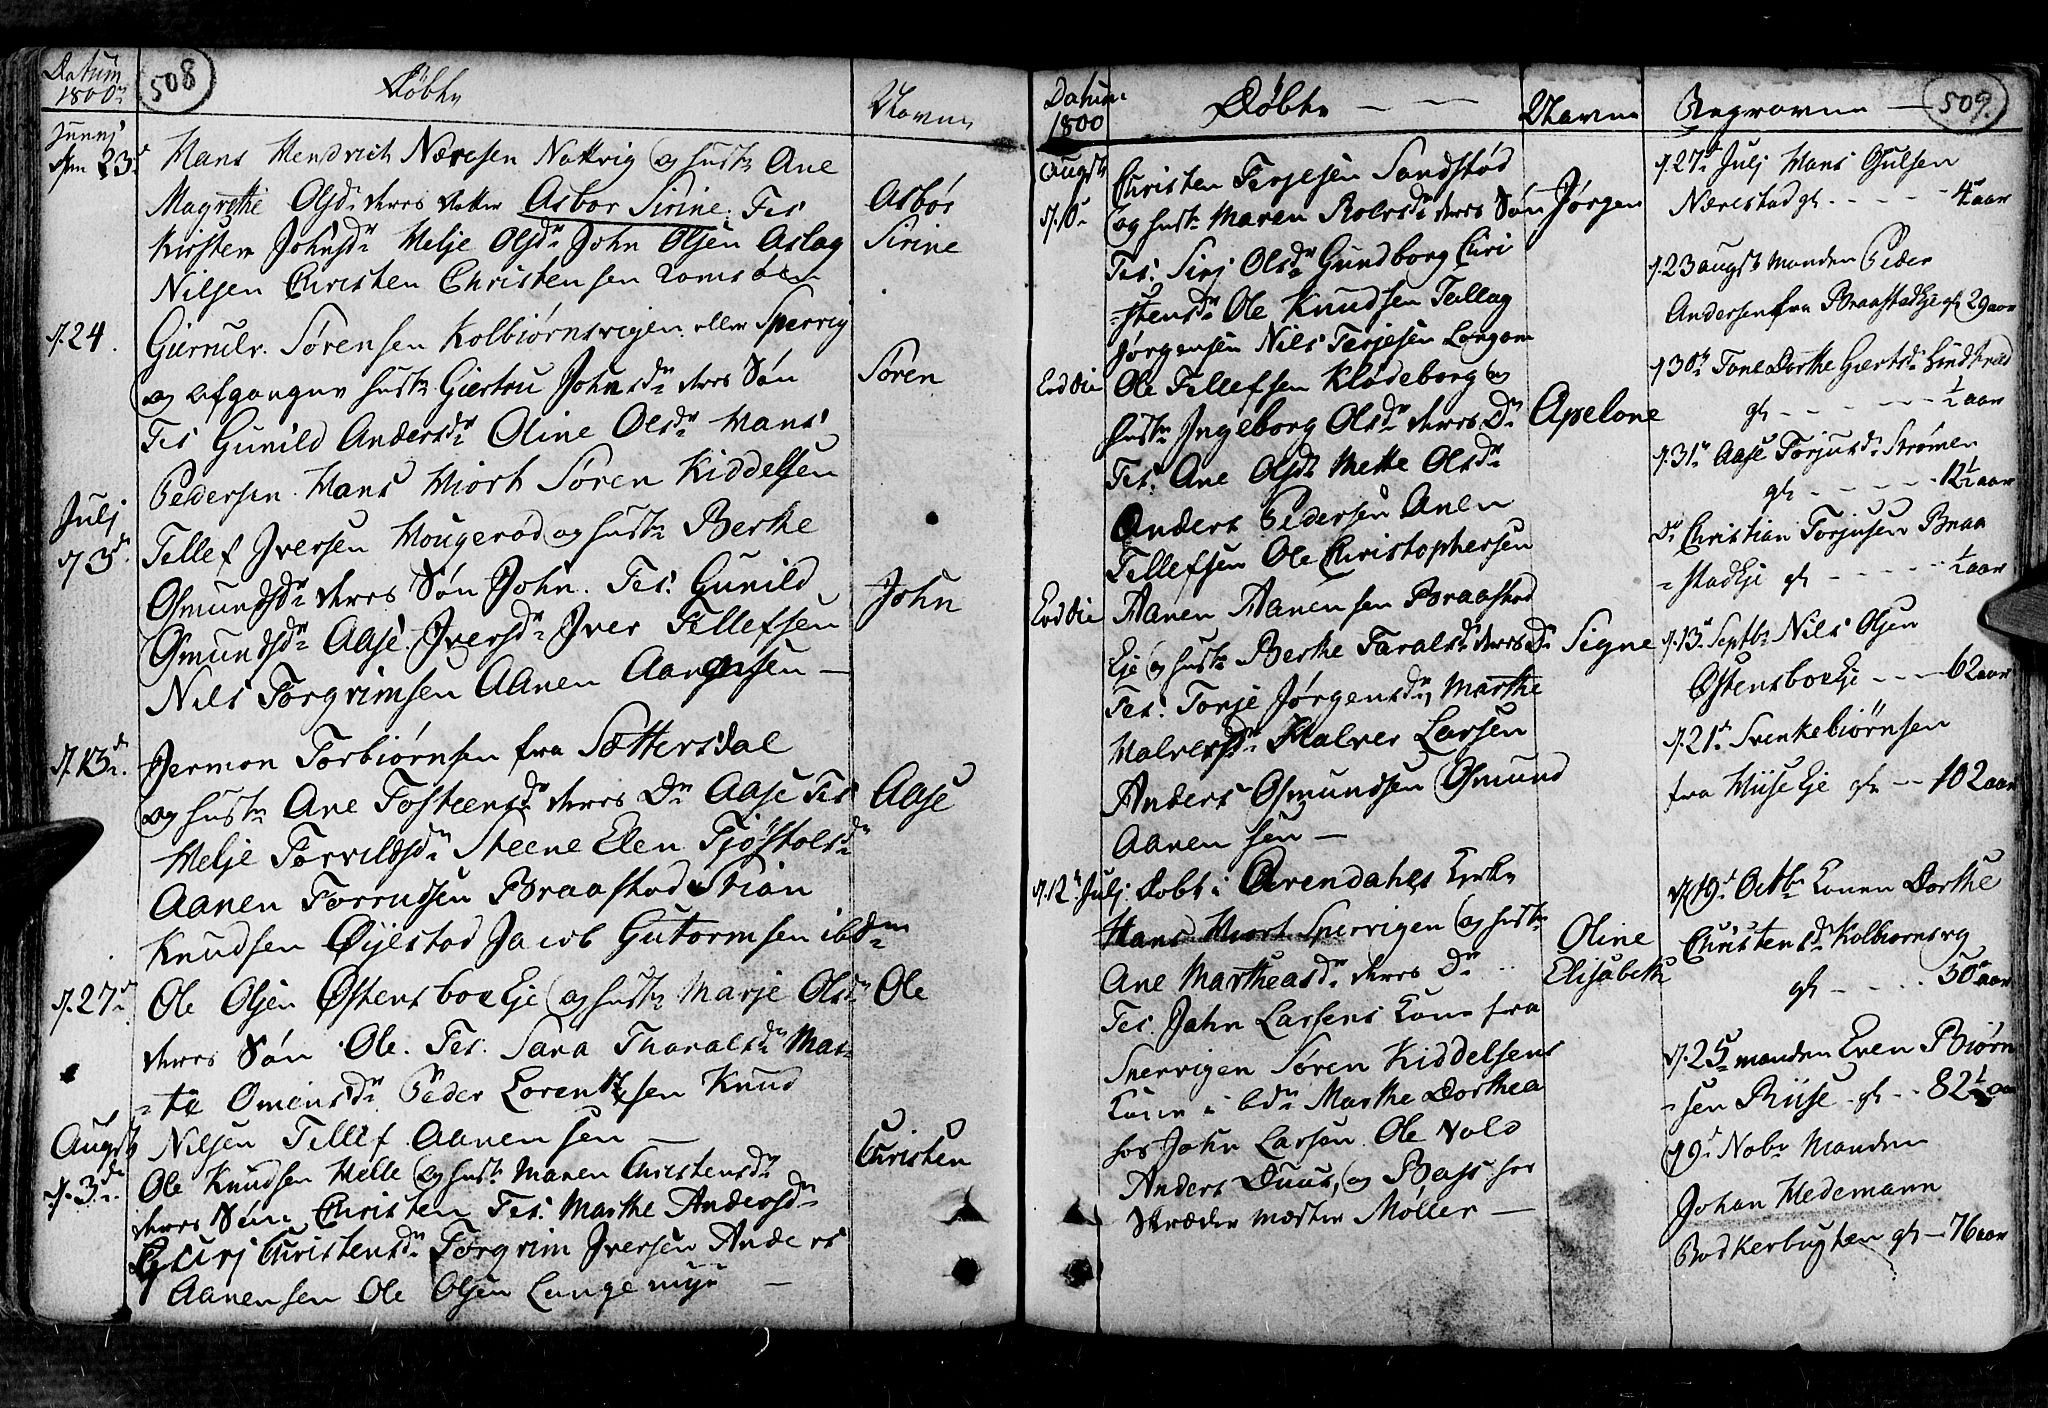 Datum
1800
508
Døbte
Navne
Junni
den 23d
Hans Hendrich Næresen Nattvig og hustr Ane
Magrethe Olsdr deres datter Asbor Sirine. Tes
Kirsten Johnsdr Helje Olsdr John Olsen Aslag
Nilsen Christen Christensen
Asbør
Sirine
d. 24.
Giernulv Sørensen Kolbiørnsvigen eller Spervig
og afgangne hustr Giertru Johnsdr deres Søn
Tes Gunild Andersdr Oline Olsdr Hans
Pedersen Hans Hiort Søren Kiddelsen
Søren
Julj
d 3d
Tellef Iversen Hougerød og hustr Berthe
Osmundsdr deres Søn John. Tes: Gunild
Osmundsdr Aase Iversdr Iver Tellefsen
Nils Torgrimsen Aanen Aanensen —
John
d. 13d
Jermon Torbiørnsen fra Sættersdal
og hustr Ane Tosteensdr deres Dr Aase Tes
Helje Torvildsdr Steene Elen Tjøstolsdr
Aanen Torrudsen Braastad Stian
Knudsen Øyestad Jacob Gutormsen ibdm
Aase
d. 27d
Ole Olsen Østensboe Eje og hustr Marje Olsdr
deres Søn Ole. Tes. Sara Tharalsdr Mar-
-te Omensdr Peder Lorentzen Knud
Nilsen Tellef Aanensen —
Ole
Augst
d. 3d
Ole Knudsen Helle og hustr Maren Christensdr
deres Søn Christen Tes: Marthe Andersdr
Gurj Christensdr Torgrim Iversen Anders
Aanensen Ole Olsen Langemyr —
Christen
Datum
1800
Døbte — —
Navne
Begravne —
509
Augst
d. 10
Christen Terjesen Sandstød
og hustr Maren Roersdr deres Søn
Tes: Sirj Olsdr Gundborg Chri
-stensdr Ole Knudsen Tallag
Jørgensen Nils Terjesen Longom
Jørgen
Eoddie
Ole Tellefsen Klødeborg og
hustr Ingeborg Olsdr deres Dr
Tes: Ane Olsdr Mette Olsdr
Anders Pedersen Anen
Tellefsen Ole Christophersen
Apelone
Eoddie
Aanen Aanensen Braastad
Eje og hustr Berthe Taralsdr deres Dr
Tes: Torje Jørgensdr Marthe
Halversdr Halver Larsen
Anders Osmundsen Osmund
Aanensen —
Signe
d. 12 Julj
Døbt i Arendahls Kirke
Hans Hiort Spervigen og hustr
Ane Martheasdr deres Dr
Tes. Jahn Larsens Kone fra
Spervigen Søren Kiddelsens
Kone i bdr Marthe Dorthea
hos John Larsen Ole Vold
Anders Duus, og Bass hos
Skræder mæster Møller —
Oline
Elisabeth
d. 27d Julj Hans Gulsen
Nærestad gl. - - - - 4 aar
d. 23 augst manden Peder
Andersen fra Braastad Eje gl 29 aar
d 30te Tone Dorthe Giertsdr
gl - - - - - - ½ aar
d. 31te Aase Torjusdr Strømen
gl - - - - - 12½ aar
Do Christian Torjusen Braa
-stad Eje gl - - - - ½ aar
d. 13 Septbr Nils Olsen
Østensboe Eje - - - 62 aar
d. 21d Svenke Biørnsen
fra Hiise Eje gl - - 102 aar
d 19d Octbr Konen Dorthe
Christensdr Kolbiørnsvig
gl - - - - . 50 aar
d. 25 manden Even Biørn
-sen Riise gl - - 82½ aa
d 9d Nobr Manden
Johan Hedemann
Bødkerbugten gl - 76 aar